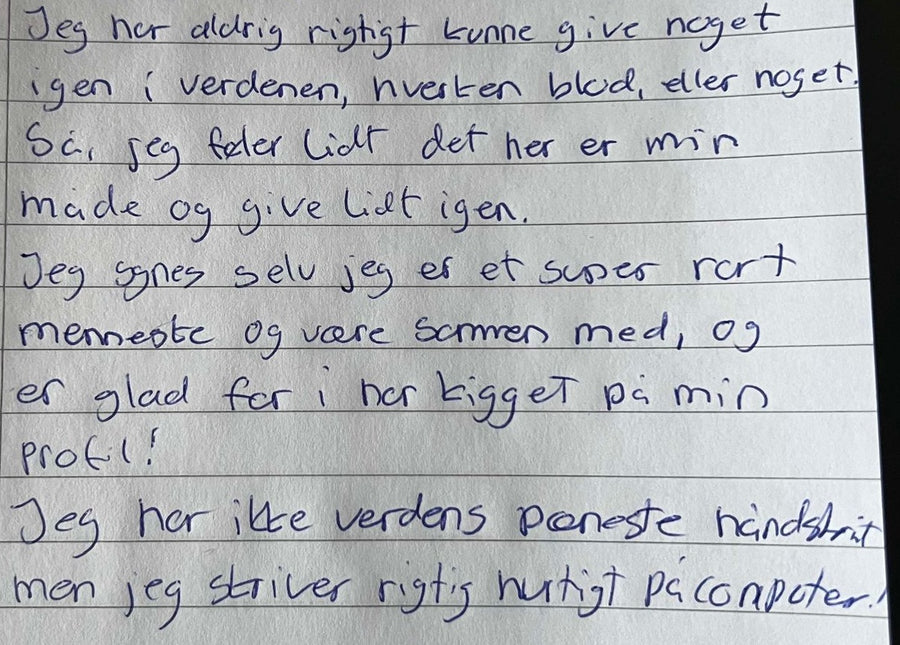 Jeg har aldrig rigtigt kunne give noget
igen i verdenen, hverken blod, eller noget.
Så, jeg føler lidt det her er min
måde og give lidt igen.
Jeg synes selv jeg er et super rart
menneske og være sammen med, og
er glad for i har kigget på min
profil!
Jeg har ikke verdens pæneste håndskrift
men jeg skriver rigtig hurtigt på computer!